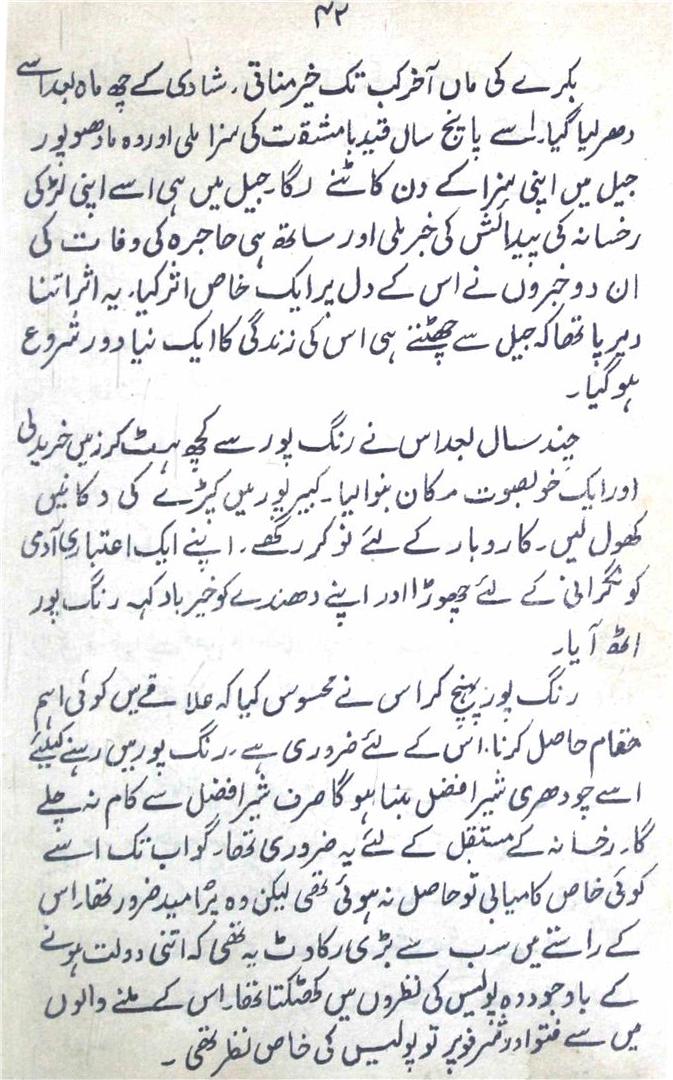 ۴۲
بکرے کی ماں آخر کب تک خیر مناتی۔ شادی کے چھ ماہ بعد اسے
دھر لیا گیا۔ اسے پانچ سال قید بامشقت کی سزا ملی اور وہ مادھوپور
جیل میں اپنی سزا کے دن کاٹنے لگا۔ جیل میں ہی اسے اپنی لڑکی
رخسانہ کی پیدائش کی خبر ملی اور ساتھ ہی حاجرہ کی وفات کی
ان دو خبروں نے اس کے دل پر ایک خاص اثر کیا۔ یہ اثر اتنا
دیرپا تھا کہ جیل سے چھٹتے ہی اس کی زندگی کا ایک نیا دور شروع
ہو گیا۔
چند سال بعد اس نے رنگ پور سے کچھ ہٹ کر زمین خرید لی
اور ایک خوبصوت مکان بنوا لیا۔ کبیر پور میں کپڑے کی دکانیں
کھول لیں۔ کاروبار کے لئے نوکر رکھے۔ اپنے ایک اعتباری آدمی
کو نگرانی کے لئے چھوڑا اور اپنے دھندے کو خیر باد کہہ رنگ پور
اٹھ آیا۔
رنگ پور پہنچ کر اس نے محسوس کیا کہ علاقے میں کوئی اہم
مقام حاصل کرنا، اس کے لئے ضروری ہے۔ رنگ پور میں رہنے کیلئے
اسے چودھری شیر افضل بننا ہو گا صرف شیر افضل سے کام نہ چلے
گا۔ رخسانہ کے مستقل کے لئے یہ ضروری تھا۔ گو اب تک اسے
کوئی خاص کامیابی تو حاصل نہ ہوئی تھی لیکن وہ پرامید ضرور تھا۔ اس
کے راستے میں سب سے بڑی رکاوٹ یہ تھی کہ اتنی دولت ہونے
کے باوجود وہ پولیس کی نظروں میں کھٹکتا تھا۔ اس کے ملنے والوں
میں سے فتو اور شرفو پر تو پولیس کی خاص نظر تھی۔